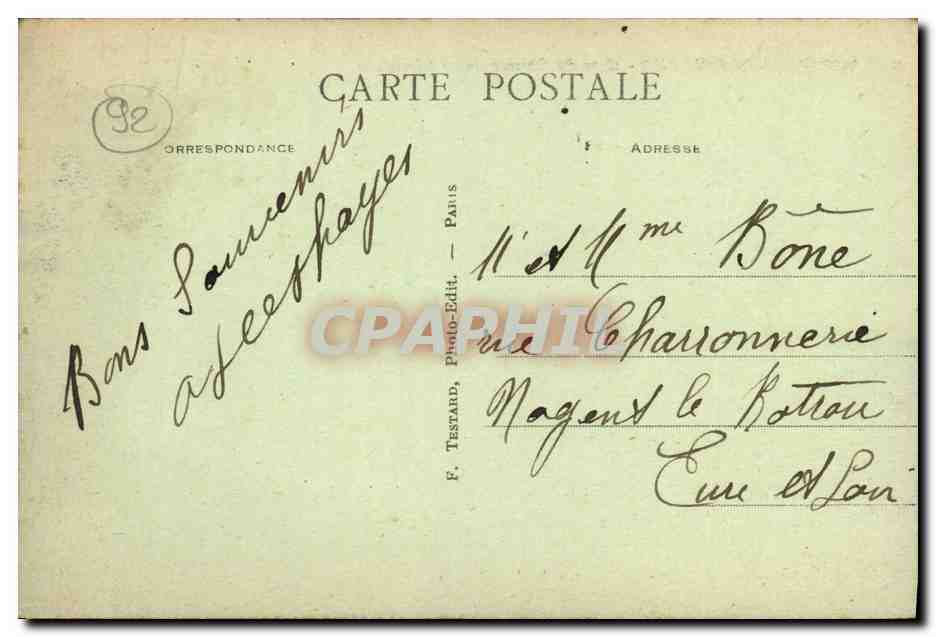 CARTE POSTALE
92
ORRESPONDANCE
ADRESSE
Bons Souvenirs
F. TESTARD, Photo-Edit. — PARIS
Mr et Mme Bône
rue Charronnerie
Nogent le Rotrou
Eure et Loir
CPAPHIL